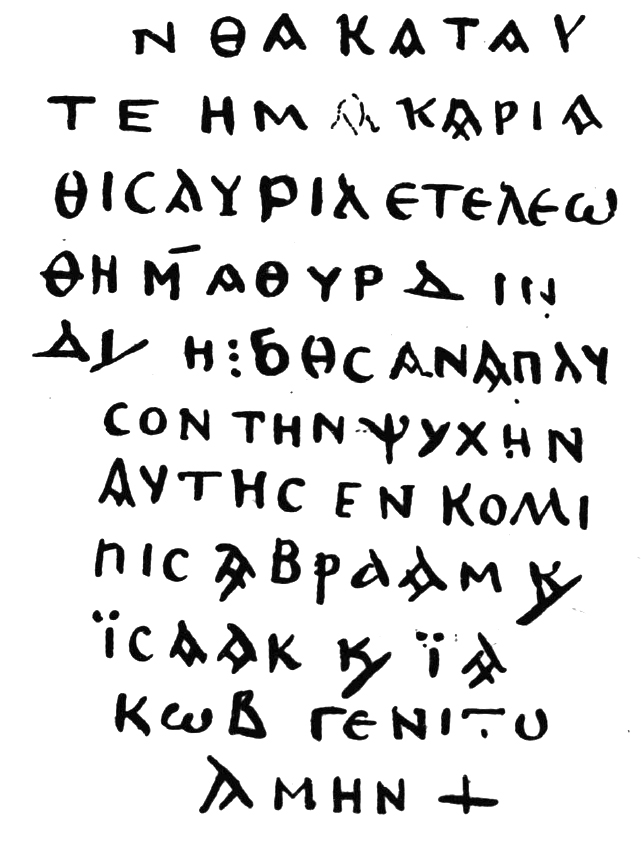 Ν ΘΑ ΚΑΤΑΥ
ΤΕ Η ΜΑΚΑΡΙΑ
ΘΙСΑΥΡΙΑ ΕΤΕΛΕω
ΘΗ Μ̄ ΑΘΥΡ Δ ΙΝ
ΔΥ Η⋮ϬΘΗС ΑΝΑΠΑΥ
СΟΝ ΤΗΝ ΨΥΧΗΝ
ΑΥΤΗС ΕΝ ΚΟΜΙ
ΠΙС ΑΒΡΑΑΜ Ϗ
ΪСΑΑΚ Ϗ ΪΑ
ΚωΒ ΓΕΝΙΤΟ
ΑΜΗΝ +